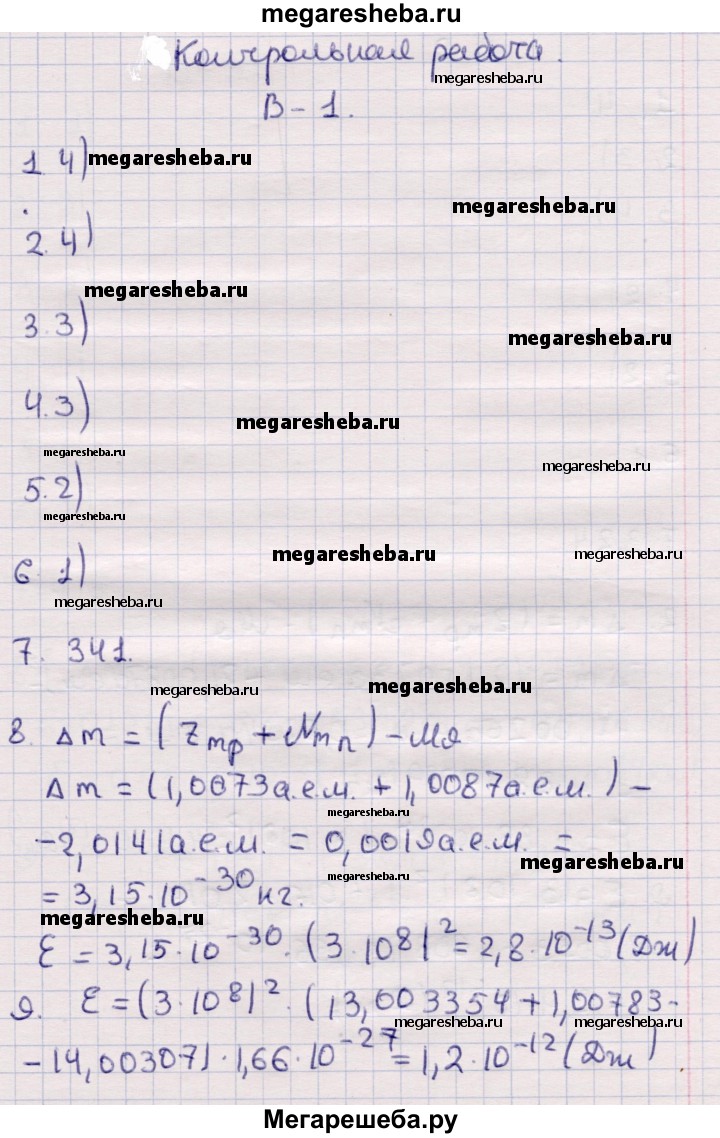 megaresheba.ru
Контрольная работа.
megaresheba.ru
В-1.
1. 4) megaresheba.ru
megaresheba.ru
2. 4)
megaresheba.ru
3. 3)
megaresheba.ru
4. 3)
megaresheba.ru
megaresheba.ru
megaresheba.ru
5. 2)
megaresheba.ru
megaresheba.ru
megaresheba.ru
6. 1)
megaresheba.ru
7. 341.
megaresheba.ru
megaresheba.ru
8. Δm = (Zmp + Nmn) - Мя
Δm = (1,0073а.е.м. + 1,0087а.е.м.) -
megaresheba.ru
-2,0141а.е.м. = 0,0019а.е.м. =
megaresheba.ru
= 3,15·10⁻³⁰ кг.
megaresheba.ru
megaresheba.ru
Ɛ = 3,15·10⁻³⁰·(3·10⁸)² = 2,8·10⁻¹³(Дж)
9. Ɛ = (3·10⁸)²·(13,003354 + 1,00783-
megaresheba.ru
megaresheba.ru
-14,00307)·1,66·10⁻²⁷ = 1,2·10⁻¹²(Дж).
Мегарешеба.ру